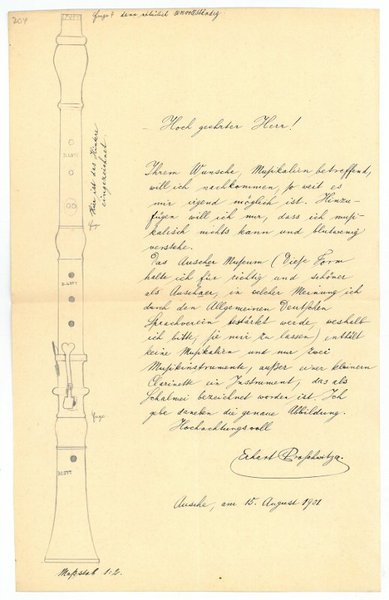 204
Fuge? dann natürlich unvollständig.
Hoch geehrter Herr!
Hier ist das Hintere
eingezeichnet
Ihrem Wunsche, Musikalien betreffend,
will ich nachkommen, so weit es
mir irgend möglich ist. Hinzu-
fügen will ich nur, dass ich musi-
kalisch nichts kann und blutwenig
verstehe.
Das Auscher Museum (Diese Form
halte ich für richtig und schöner
als Auschaer, in welcher Meinung ich
durch den Allgemeinen Deutschen
Sprachverein bestärkt werde, weshalb
ich bitte, sie mir zu lassen) enthält
keine Musikalien und nur zwei
Musikinstrumente, außer einer kleinern
Clarinette ein Instrument, das als
Schalmei bezeichnet worden ist. Ich
gebe daneben die genaue Abbildung.
Hochachtungsvoll
Fuge
Ausche, am 15. August 1901
Maßstab 1:2.